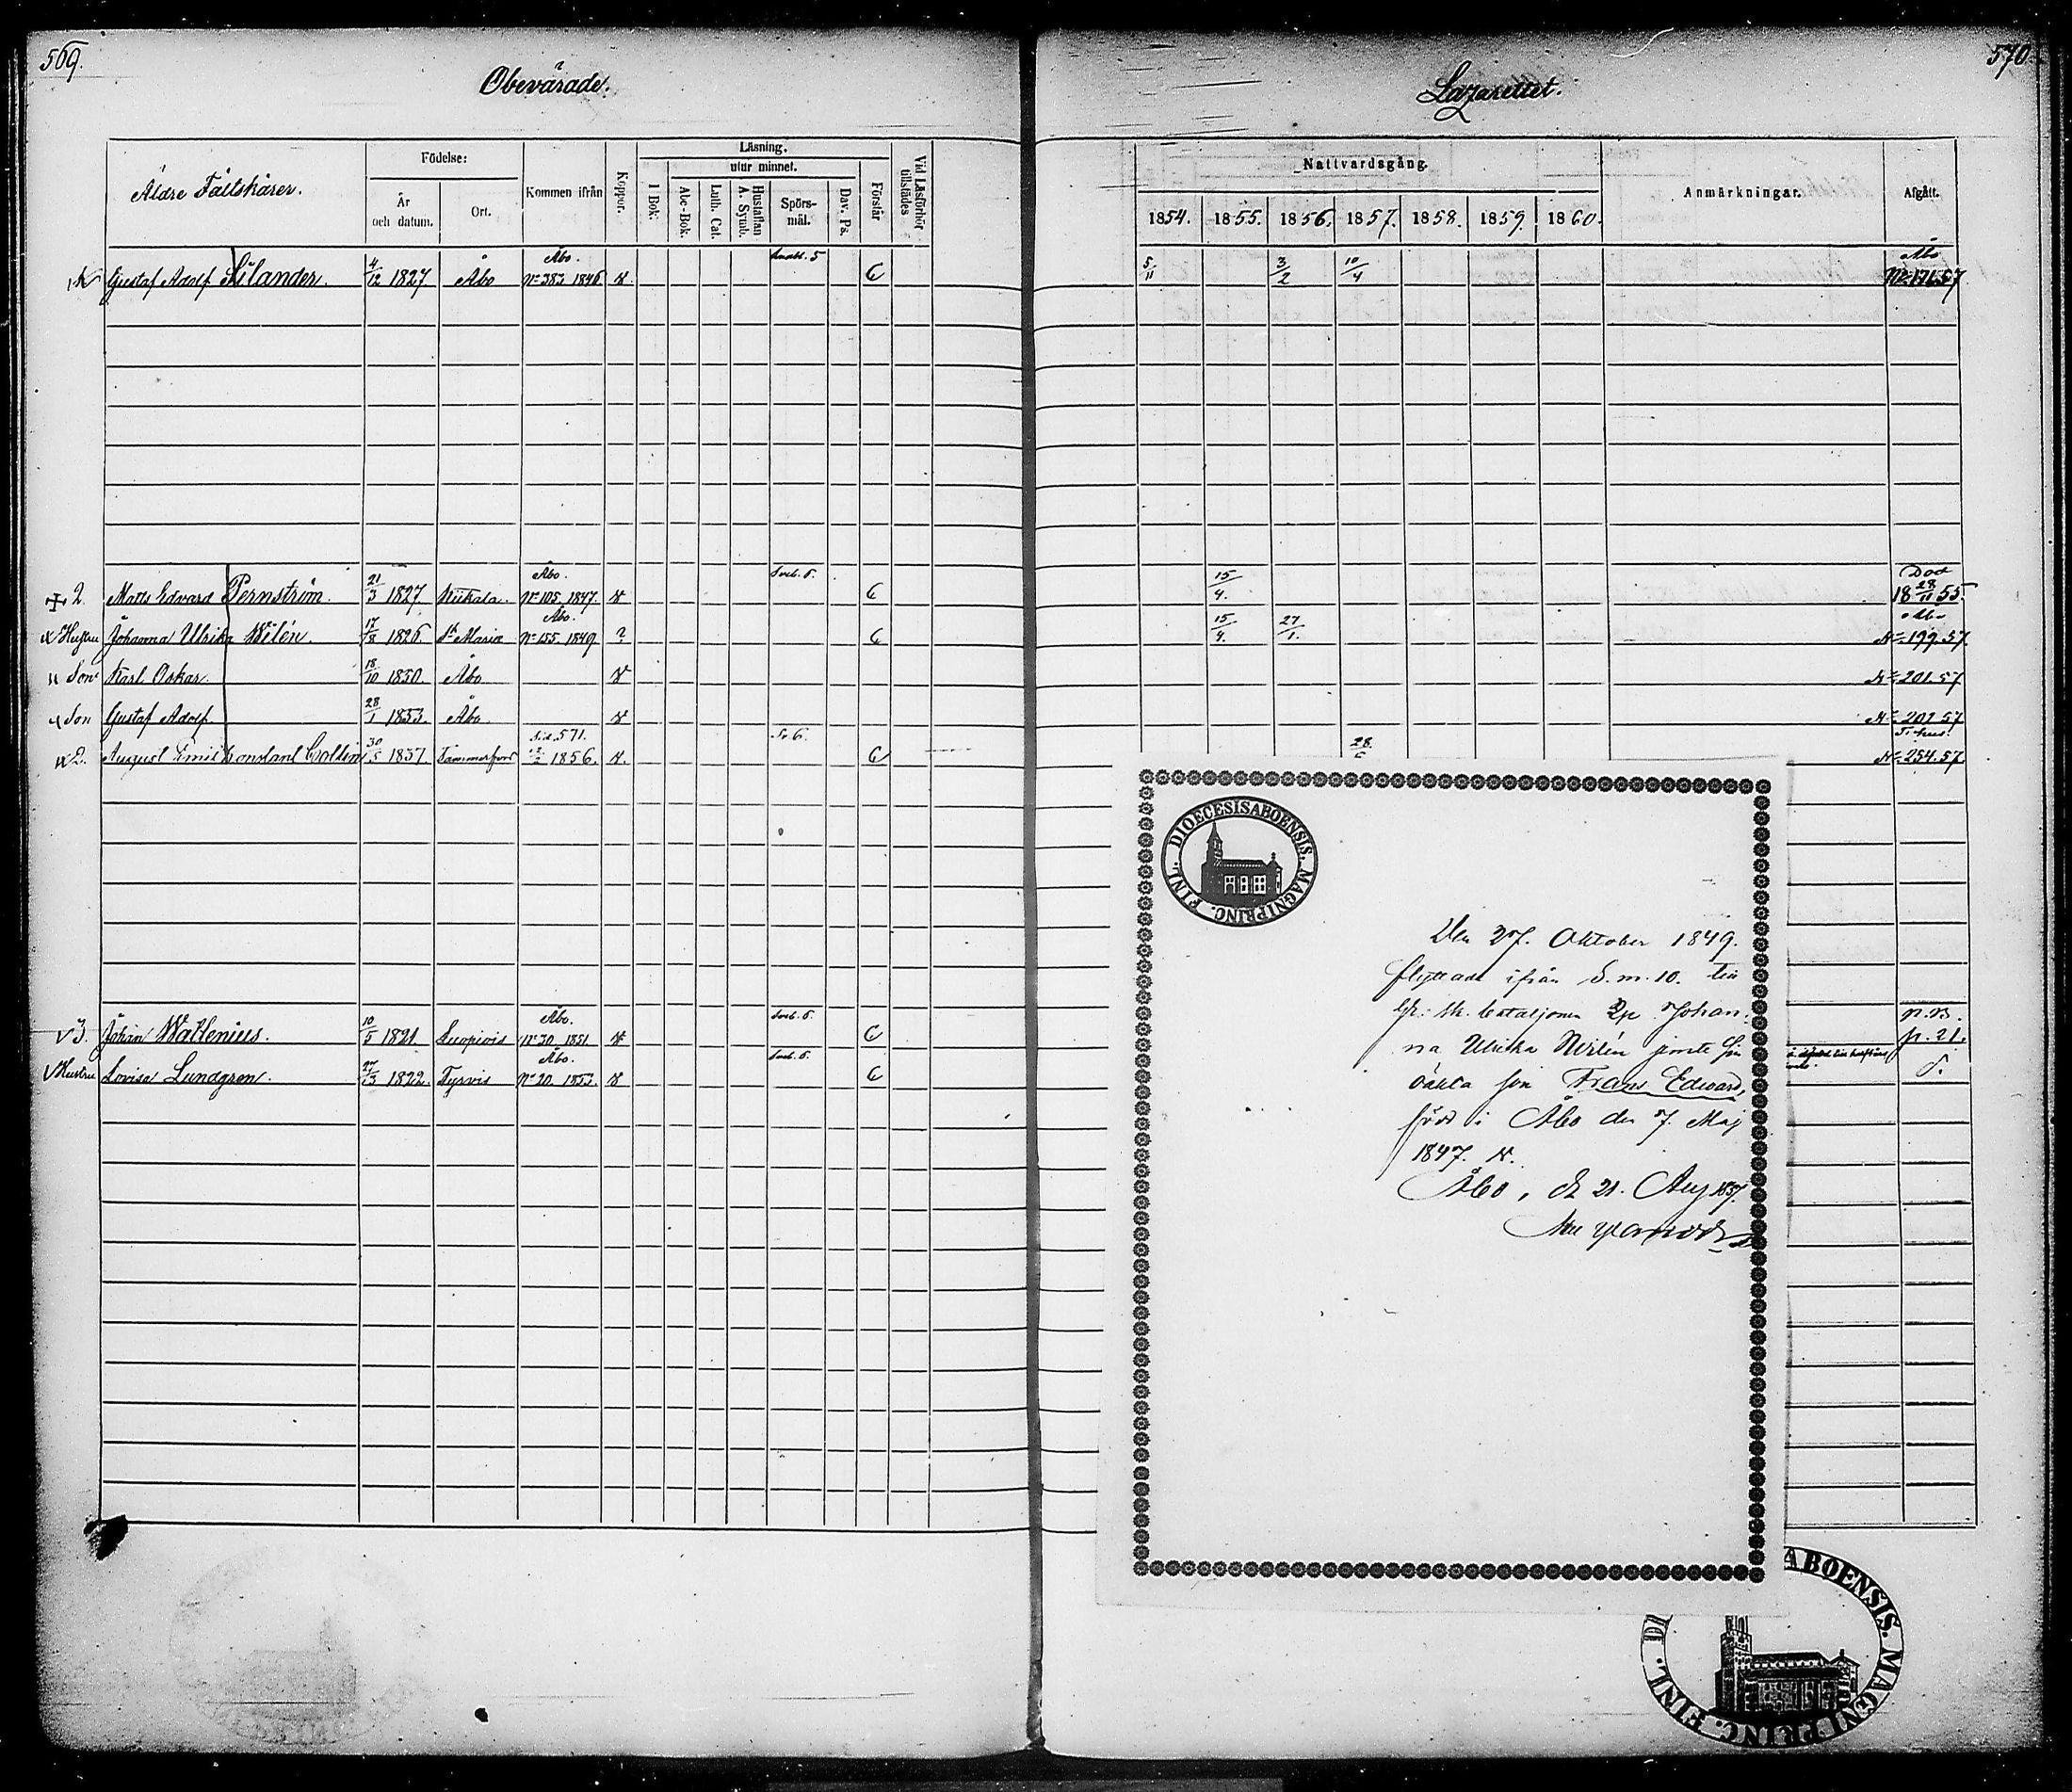 569.
Obevärade.
Äldre Fältskärer.
Födelse:
År och datum.
Ort.
Kommen ifrån
Koppor.
Läsning.
I Bok.
utur minnet.
Abc-Bok.
Luth. Cat.
Hustaflan A. Symb.
Spörs-mål.
Dav. Ps.
Förstår
Vid Läsförhör tillstädes
Gustaf Adolf Silander. 4/12 1827 Åbo Åbo. No 383 1846.
2. Matts Edvard Pernström. 21/3 1827 Kiikala. Åbo. No 105 1847.
Hustru Johanna Ulrika Wilén. 17/8 1826. St Mariæ Åbo. No 155. 1849. ?
Son Karl Oskar. 18/10 1850. Åbo
Son Gustaf Adolf. 28/1 1853. Åbo.
2. August Emil Constant 30/5 1837. Tammerfors Sid. 571. 1856.
3. Johan Wallenius. 10/5 1821. Åbo. No 30 1851
Hustru Lovisa Lundgren. 27/3 1822. Tyrvis Åbo. No 20. 1853.
570.
Lazarettet.
Nattvardsgång.
Anmärkningar.
Afgått.
1854. 1855. 1856. 1857. 1858. 1859. 1860.
5/11 3/2 10/4 Åbo No 171.57
15/4. Död 18 28/11 55.
15/4. 27/1. Åbo No 199.57
No 201.57
No 202 57
28 No 254.57.
p. 21.
DIOECESIS ABOENSIS. MAGNI PRINC. FINL.
Den 27. Oktober 1849.
flyttade ifrån S.m. 10. till
Gr: Sk. bataljonen Johan-
na Ulrika Wilén jemte sin
oäkta son Frans Edward,
född i Åbo den 7. Maj
1847.
Åbo, d. 21. Aug 1857.
ABOENSIS. MAGNI PRINC. FINL. DI